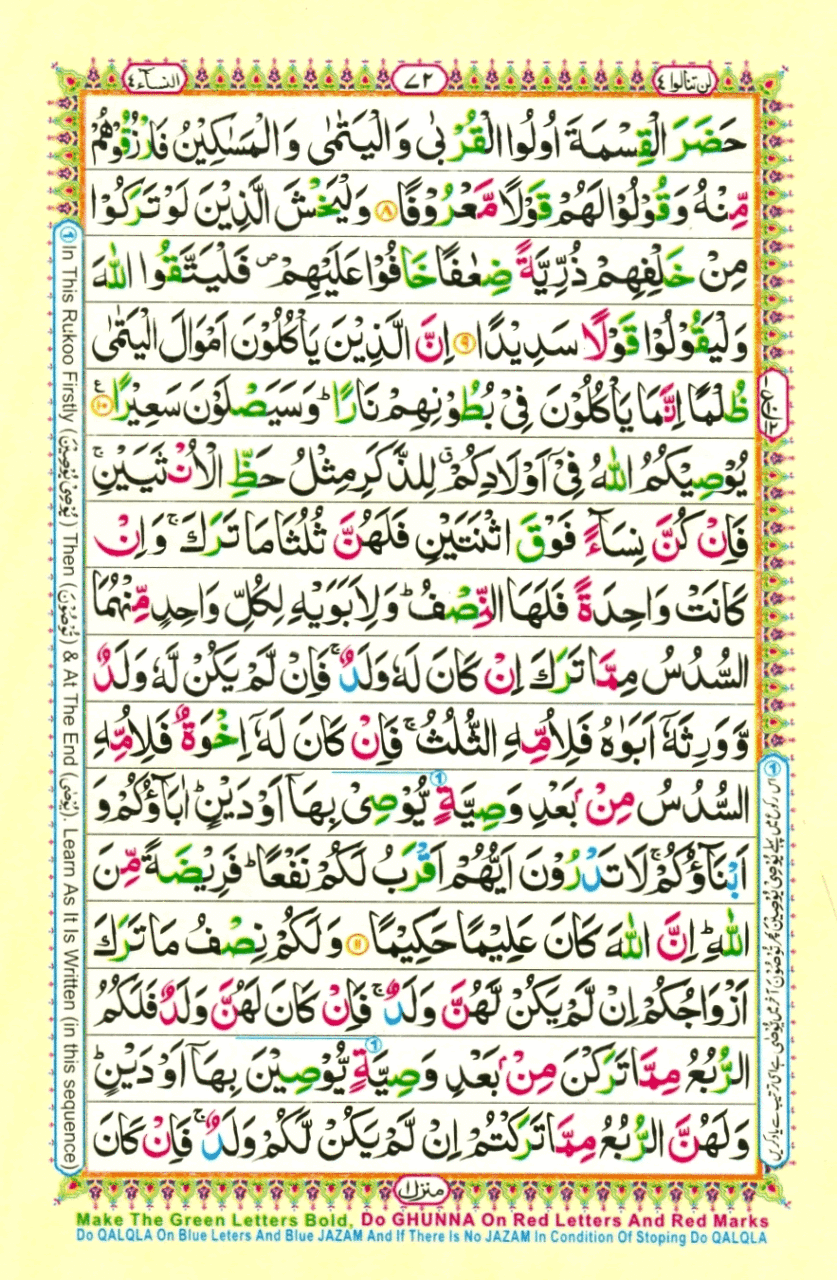 لن تنالوا ٤
٧٢
النسآء ٤
حَضَرَ الْقِسْمَةَ اُولُوا الْقُرْبٰى وَالْيَتٰمٰى وَالْمَسٰكِيْنُ فَارْزُقُوْهُمْ
مِّنْهُ وَقُوْلُوْا لَهُمْ قَوْلًا مَّعْرُوْفًا ۝٨ وَلْيَخْشَ الَّذِيْنَ لَوْ تَرَكُوْا
مِنْ خَلْفِهِمْ ذُرِّيَّةً ضِعٰفًا خَافُوْا عَلَيْهِمْ ۖ فَلْيَتَّقُوا اللّٰهَ
وَلْيَقُوْلُوْا قَوْلًا سَدِيْدًا ۝٩ اِنَّ الَّذِيْنَ يَاْكُلُوْنَ اَمْوَالَ الْيَتٰمٰى
ظُلْمًا اِنَّمَا يَاْكُلُوْنَ فِيْ بُطُوْنِهِمْ نَارًا ؕ وَسَيَصْلَوْنَ سَعِيْرًا ۝١٠ ع
يُوْصِيْكُمُ اللّٰهُ فِيْٓ اَوْلَادِكُمْ ۗ لِلذَّكَرِ مِثْلُ حَظِّ الْاُنْثَيَيْنِ ۚ
فَاِنْ كُنَّ نِسَآءً فَوْقَ اثْنَتَيْنِ فَلَهُنَّ ثُلُثَا مَا تَرَكَ ۚ وَاِنْ
كَانَتْ وَاحِدَةً فَلَهَا النِّصْفُ ؕ وَلِاَبَوَيْهِ لِكُلِّ وَاحِدٍ مِّنْهُمَا
السُّدُسُ مِمَّا تَرَكَ اِنْ كَانَ لَهٗ وَلَدٌ ۚ فَاِنْ لَّمْ يَكُنْ لَّهٗ وَلَدٌ
وَّوَرِثَهٗٓ اَبَوٰهُ فَلِاُمِّهِ الثُّلُثُ ۚ فَاِنْ كَانَ لَهٗٓ اِخْوَةٌ فَلِاُمِّهِ
السُّدُسُ مِنْۢ بَعْدِ وَصِيَّةٍ يُّوْصِيْ بِهَآ اَوْ دَيْنٍ ؕ اٰبَآؤُكُمْ وَ
اَبْنَآؤُكُمْ ۚ لَا تَدْرُوْنَ اَيُّهُمْ اَقْرَبُ لَكُمْ نَفْعًا ؕ فَرِيْضَةً مِّنَ
اللّٰهِ ؕ اِنَّ اللّٰهَ كَانَ عَلِيْمًا حَكِيْمًا ۝١١ وَلَكُمْ نِصْفُ مَا تَرَكَ
اَزْوَاجُكُمْ اِنْ لَّمْ يَكُنْ لَّهُنَّ وَلَدٌ ۚ فَاِنْ كَانَ لَهُنَّ وَلَدٌ فَلَكُمُ
الرُّبُعُ مِمَّا تَرَكْنَ مِنْۢ بَعْدِ وَصِيَّةٍ يُّوْصِيْنَ بِهَآ اَوْ دَيْنٍ ؕ
وَلَهُنَّ الرُّبُعُ مِمَّا تَرَكْتُمْ اِنْ لَّمْ يَكُنْ لَّكُمْ وَلَدٌ ۚ فَاِنْ كَانَ
منزل ١
① In This Rukoo Firstly (يُوْصِيْ يُوْصِيْنَ) Then (تُوْصُوْنَ) & At The End (يُوْصٰى). Learn As It Is Written (in this sequence)
Make The Green Letters Bold, Do GHUNNA On Red Letters And Red Marks
Do QALQLA On Blue Leters And Blue JAZAM And If There Is No JAZAM In Condition Of Stoping Do QALQLA